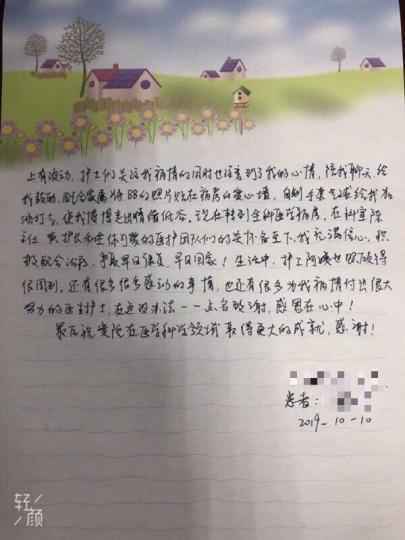 上有波动，护士们关注我病情的同时也注意到了我的心情，陪我聊天，给
我鼓励，配合家属将BB的照片贴在病房的爱心墙，自制手表气球给我加
油打气，使我慢慢走出情绪低谷。现在转到全科医学病房，在科室陈
主任、黄护长和梁你们的医护团队们的关怀备至下，我充满信心，积
极配合治疗，争取早日康复，早日回家！生活中，护工阿姨也照顾得
很周到，还有很多很多感动的事情，也还有很多为我病情付出很大
努力的医生护士，在这没法一一点名致谢，感恩在心中！
最后祝贵院在医学科学领域取得更大的成就，感谢！
患者：
2019-10-10
轻
颜